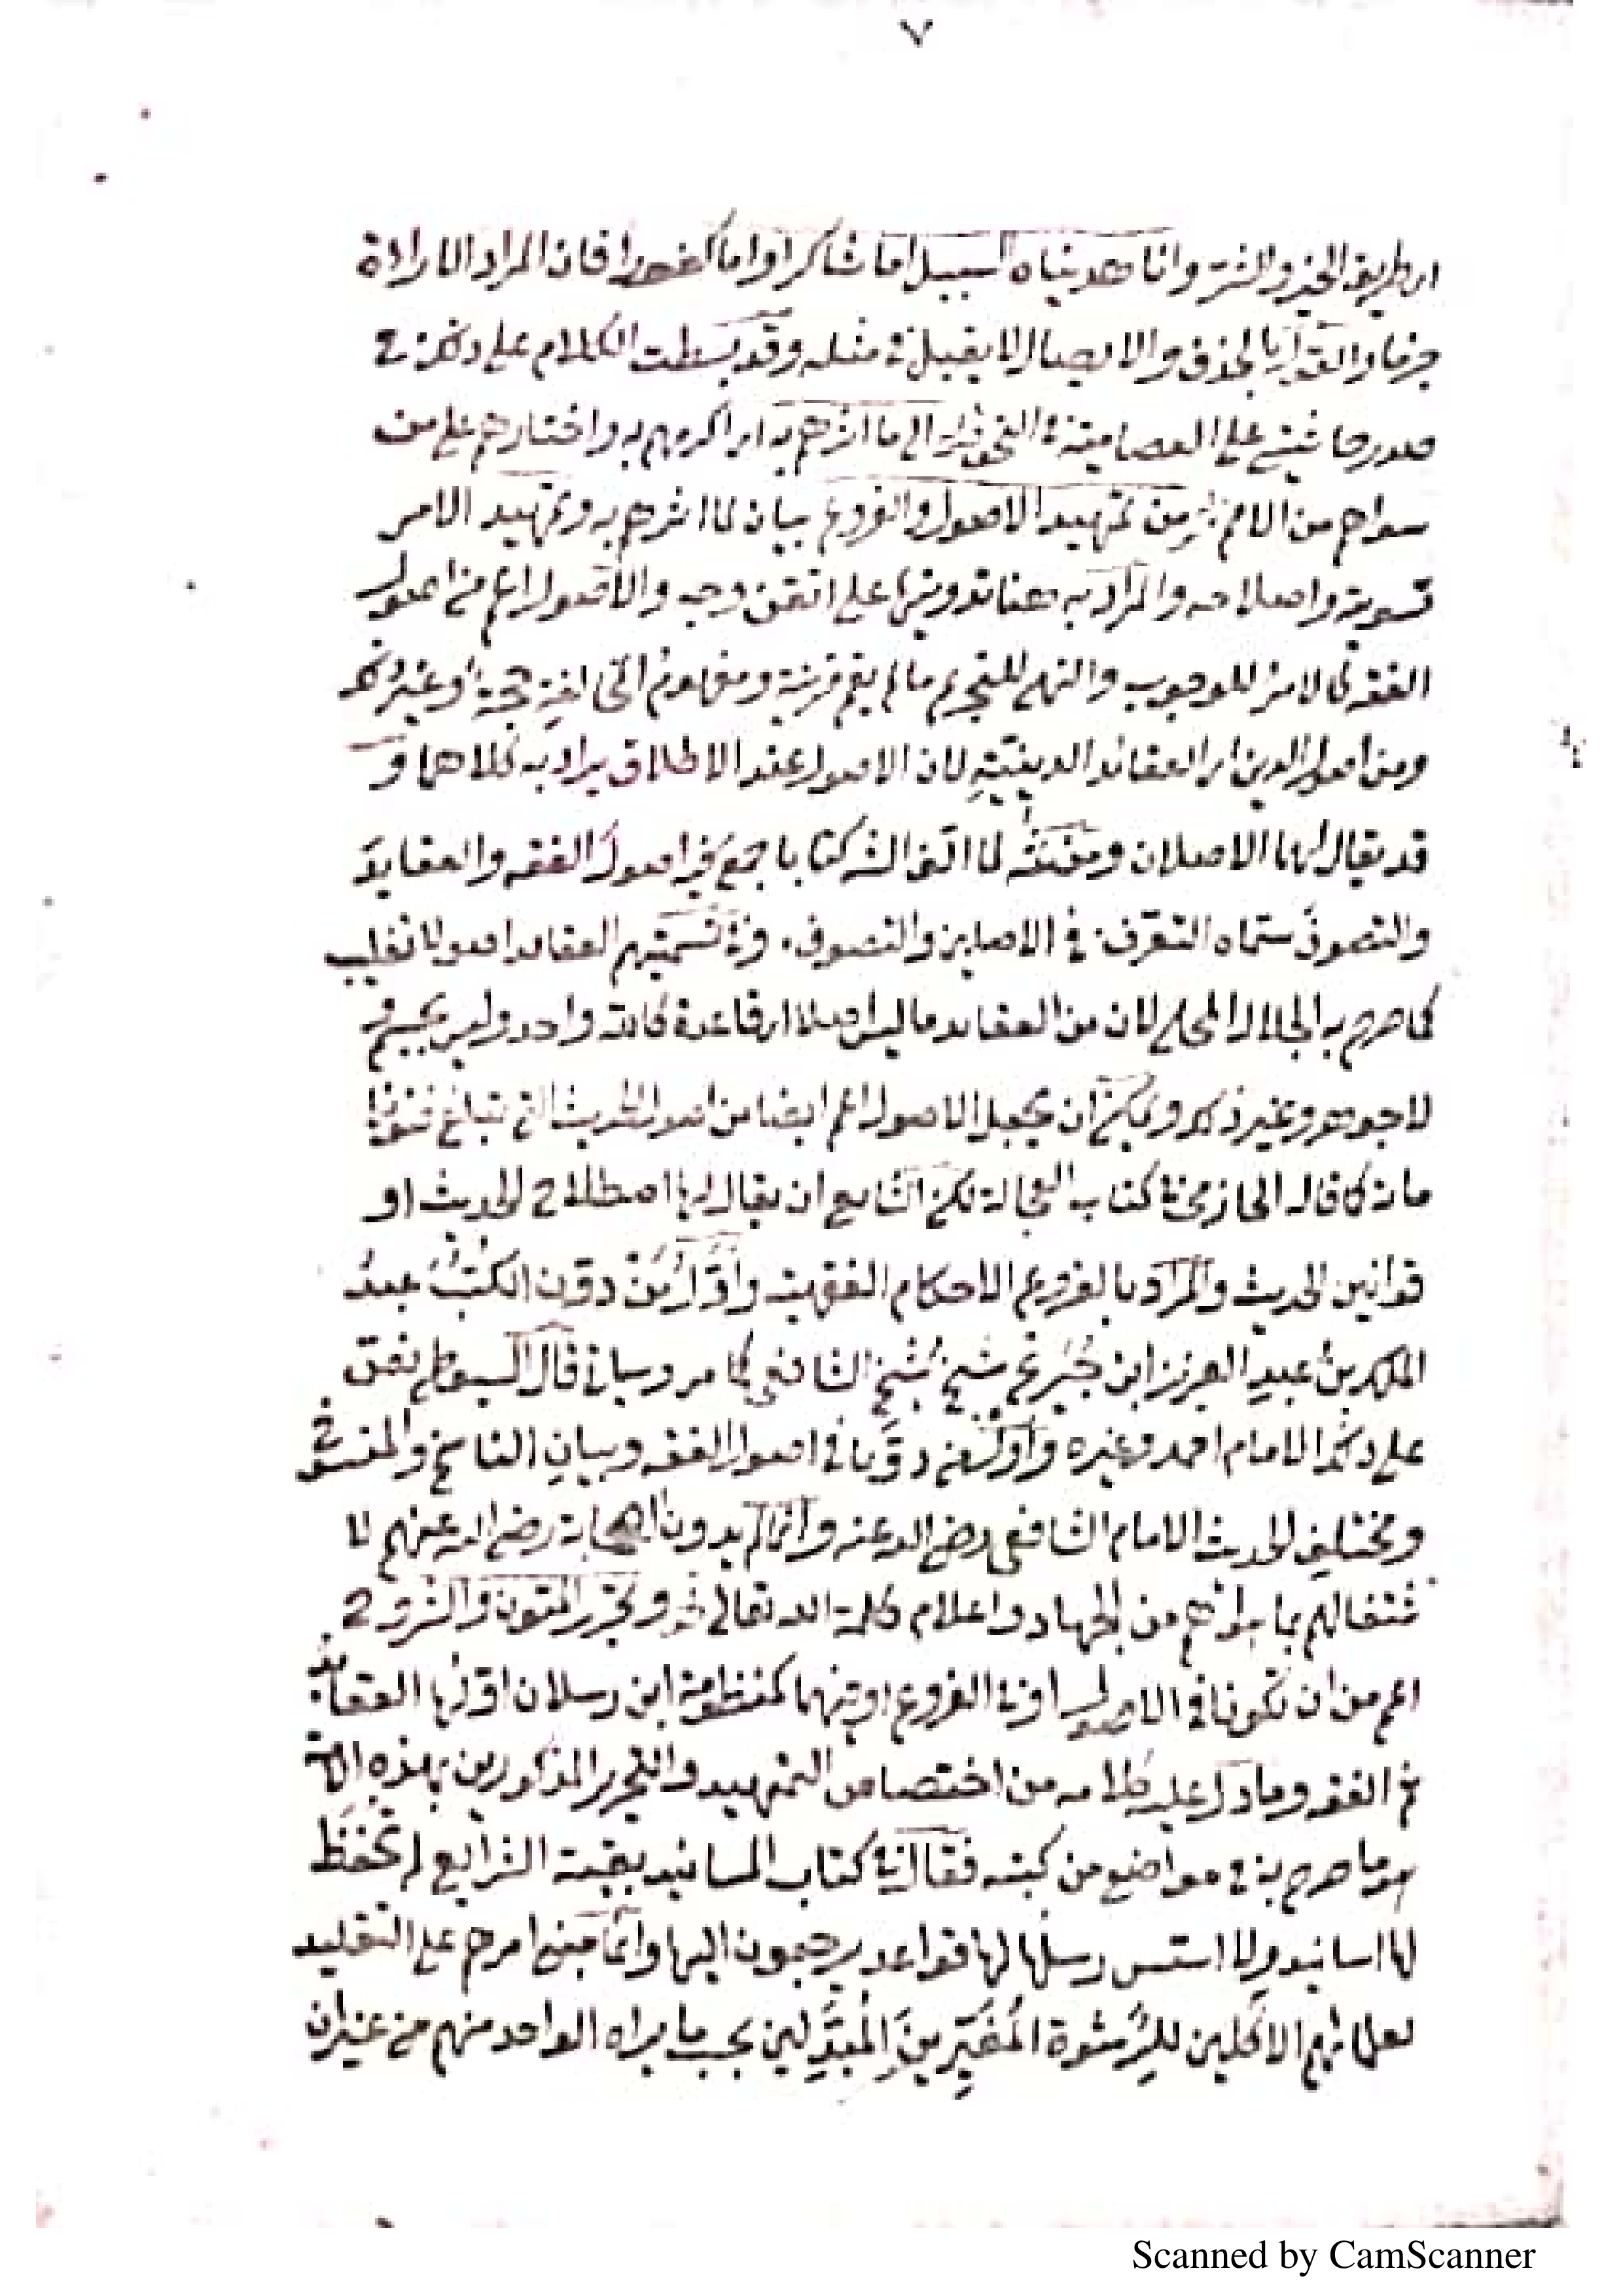 ٧
اى طريق الخير والشر وانا هديناه السبيل اما شاكرا واما كفورا فان المراد الاراءة
جزما والقول بالحذف والايصال لا يقبل فى مثله وقد بسطت الكلام على ذلك فى
صدر حاشيتى على العصامية الى ما اثرهم به اى اكرمهم به واختارهم على من
سواهم من الامم من تمهيد الاصول والفروع بيان لما اثرهم به وتمهيد الامر
تسويته واصلاحه والمراد به هنا تدوينها على اتقن وجه والاصول اعم من اصول
الفقه كالامر للوجوب والنهى للتحريم ما لم يقم قرينة ومفهوم المخالفة حجة وغير ذلك
ومن اصول الدين اى العقائد الدينية لان الاصول عند الاطلاق يراد به كلاهما و
قد يقال لهما الاصلان ومن ثَم لما الف كتابا جمع فيه اصول الفقه والعقايد
والتصوف سماه التعرف فى الاصلين والتصوف . وفى تسميتهم العقايد اصولا تغليب
كما صرح به الجلال المحلى لان من العقايد ما ليس اصلا اى قاعدة كالله واحد وليس بجسم
لا جوهر وغير ذلك ويمكن ان يجعل الاصول اعم ايضا من اصول الحديث التى تبلغ
مائة كما قاله الحازمى فى كتاب العجالة لكن الشايع ان يقال لها اصطلاح الحديث او
قوانين الحديث والمراد بالفروع الاحكام الفقهية وأوّل مَنْ دوّن الكتبَ عبدُ
الملك بن عبد العزيز ابن جُرَيج شيخُ شيخِ الشافعى كما مر وسيأتى قال السيوطى نص
على ذلك الامام احمد وغيره وأول من دوّنا فى اصول الفقه وبيان الناسخ والمنسوخ
ومختلف الحديث الامام الشافعى رضى الله عنه وانما لم يدون الصحابة رضى الله عنهم لا
شتغالهم بما هو اهم من الجهاد واعلاء كلمة الله تعالى وتحرير المتون والشروح
اعم من ان تكونا فى الاصول او فى الفروع او فيهما كمنظومة ابن رسلان اولها العقايد
ثم الفقه وما دل عليه كلامه من اختصاص التمهيد والتحرير المذكورين بهذه الامة
هو ما صرح به فى مواضع من كتبه فقال فى كتاب المسانيد بقية الشرايع لم تحفظ
لها اسانيد ولا اسس رسلها لها قواعد يرجعون اليها وانما مبنى امرهم على التقليد
لعلمائهم الآكلين للرُّشوة المُغيِّرينَ المُبدِّلين بحسب ما يراه الواحد منهم من غير ان
Scanned by CamScanner